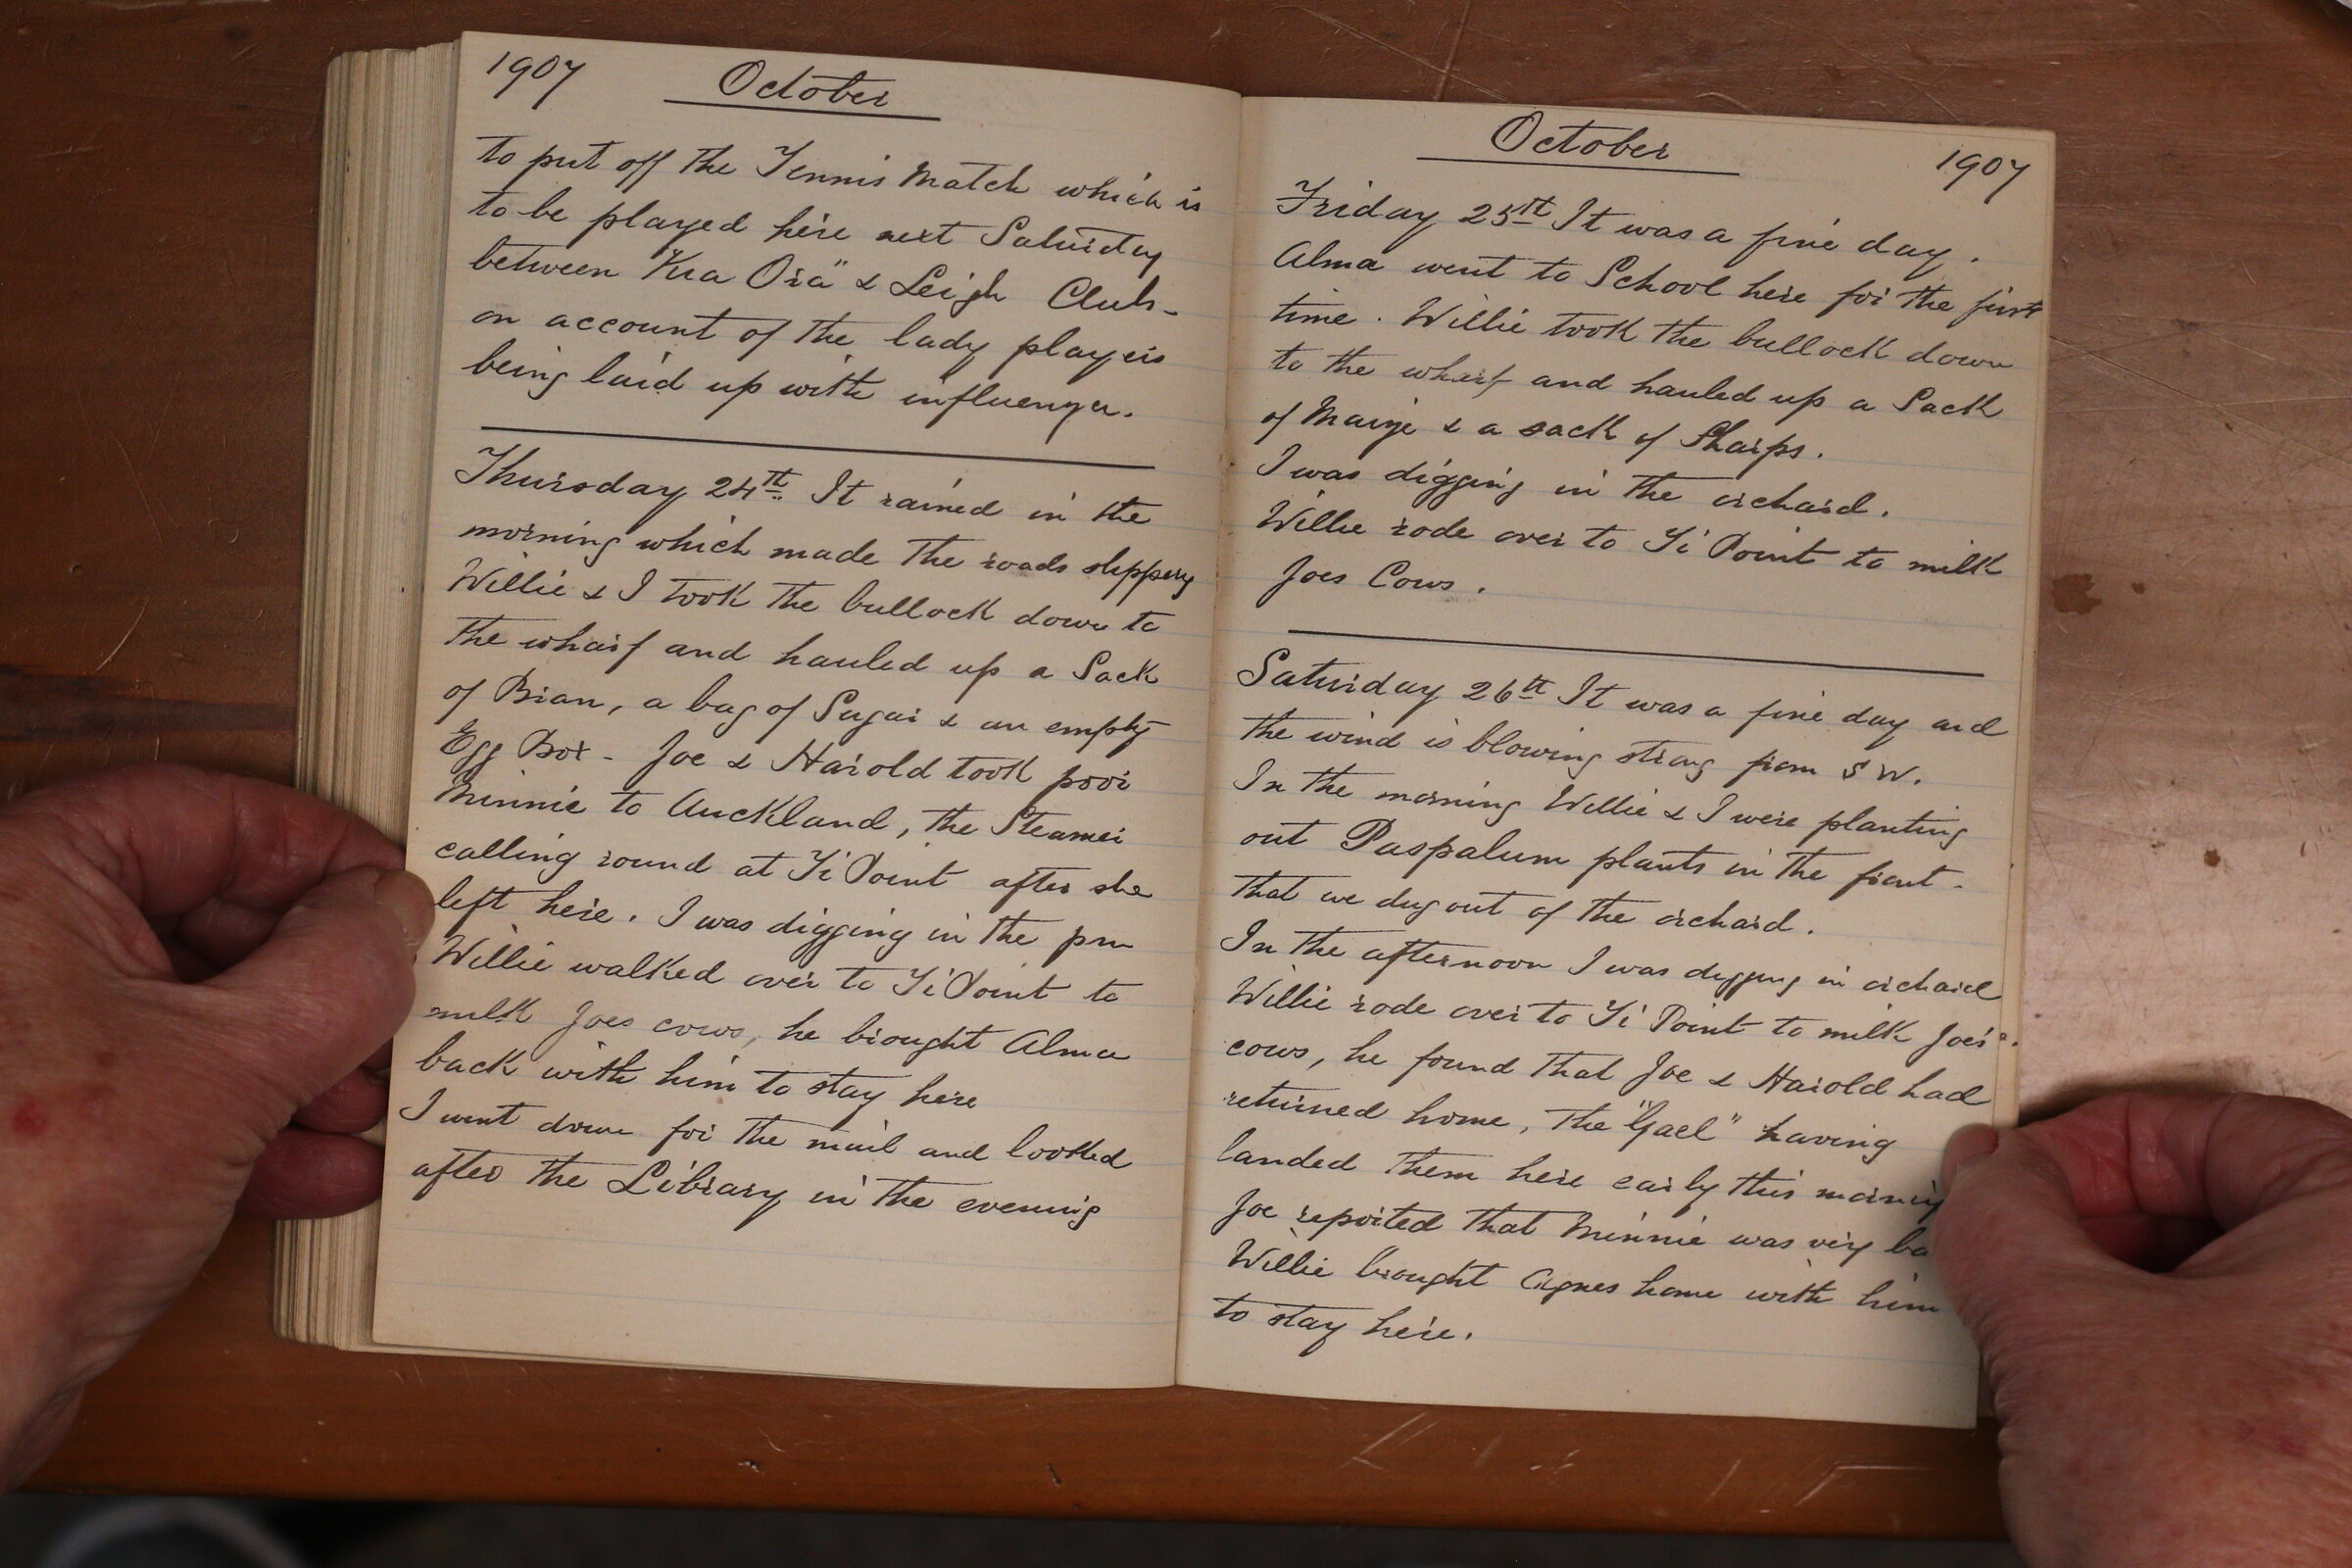 1907 October
to put off the Tennis Match which is
to be played here next Saturday
between "Kia Ora" & Leigh Clubs -
on account of the lady players
being laid up with influenza.
Thursday 24th It rained in the
morning which made the roads slippery
Willie & I took the bullock down to
the wharf and hauled up a Sack
of Bran, a bag of Sugar & an empty
Egg Box - Joe & Harold took poor
Minnie to Auckland, the Steamer
calling round at Ti Point after she
left here. I was digging in the pm
Willie walked over to Ti Point to
milk Joes cows, he brought Alma
back with him to stay here
I went down for the mail and looked
after the Library in the evening
October 1907
Friday 25th It was a fine day.
Alma went to School here for the first
time. Willie took the bullock down
to the wharf and hauled up a Sack
of Maize & a sack of Sharps.
I was digging in the orchard.
Willie rode over to Ti Point to milk
Joes Cows.
Saturday 26th It was a fine day and
the wind is blowing strong from S W.
In the morning Willie & I were planting
out Paspalum plants in the front -
that we dug out of the orchard.
In the afternoon I was digging in orchard
Willie rode over to Ti Point to milk Joe's
cows, he found that Joe & Harold had
returned home, the "Gael" having
landed them here early this morning
Joe reported that Minnie was very ba
Willie brought Agnes home with him
to stay here.